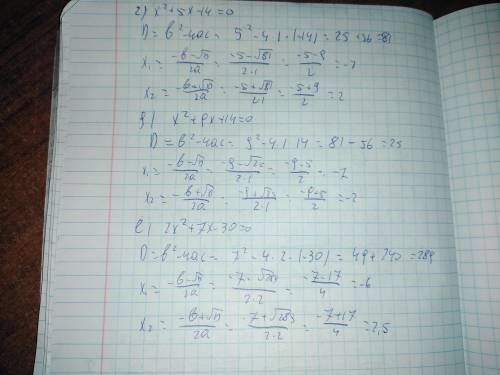 г) x²+5x-14=0
D = b²-4ac = 5²-4·1·(-14) = 25+56=81
x₁ = \frac{-b-√D}{2a} = \frac{-5-√81}{2·1} = \frac{-5-9}{2} = -7
x₂ = \frac{-b+√D}{2a} = \frac{-5+√81}{2·1} = \frac{-5+9}{2} = 2
g) x²+9x+14=0
D = b²-4ac = 9²-4·1·14 = 81-56 = 25
x₁ = \frac{-b-√D}{2a} = \frac{-9-√25}{2·1} = \frac{-9-5}{2} = -7
x₂ = \frac{-b+√D}{2a} = \frac{-9+√25}{2·1} = \frac{-9+5}{2} = -2
e) 2x²+7x-30=0
D = b²-4ac = 7²-4·2·(-30) = 49+240 = 289
x₁ = \frac{-b-√D}{2a} = \frac{-7-√289}{2·2} = \frac{-7-17}{4} = -6
x₂ = \frac{-b+√D}{2a} = \frac{-7+√289}{2·2} = \frac{-7+17}{4} = 2,5